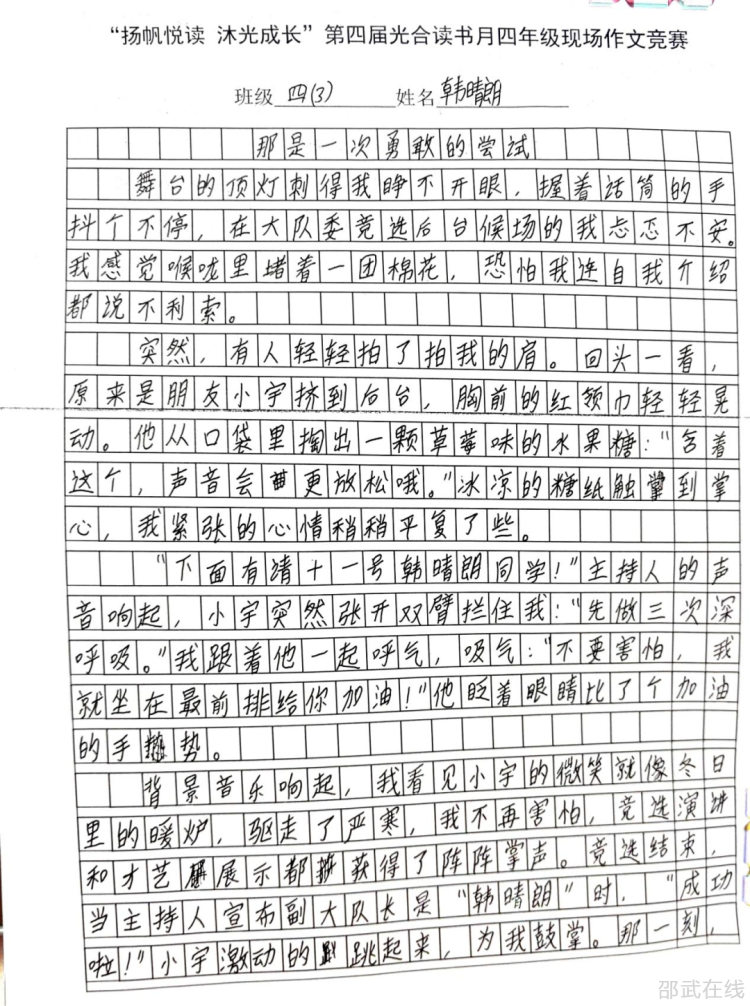 “扬帆悦读 沐光成长”第四届光合读书月四年级现场作文竞赛
班级 四(3) 姓名 韩晴朗
那是一次勇敢的尝试
舞台的顶灯刺得我睁不开眼，握着话筒的手
抖个不停，在大队委竞选后台候场的我忐忑不安。
我感觉喉咙里堵着一团棉花，恐怕我连自我介绍
都说不利索。
突然，有人轻轻拍了拍我的肩。回头一看，
原来是朋友小宇挤到后台，胸前的红领巾轻轻晃
动。他从口袋里掏出一颗草莓味的水果糖：“含着
这个，声音会更放松哦。”冰凉的糖纸触到掌
心，我紧张的心情稍稍平复了些。
“下面有请十一号韩晴朗同学！”主持人的声
音响起，小宇突然张开双臂拦住我：“先做三次深
呼吸。”我跟着他一起呼气，吸气：“不要害怕，我
就坐在最前排给你加油！”他眨着眼睛比了个加油
的手势。
背景音乐响起，我看见小宇的微笑就像冬日
里的暖炉，驱走了严寒，我不再害怕，竞选演讲
和才艺展示都获得了阵阵掌声。竞选结束，
当主持人宣布副大队长是“韩晴朗”时，“成功
啦！”小宇激动的跳起来，为我鼓掌。那一刻，
邵武在线